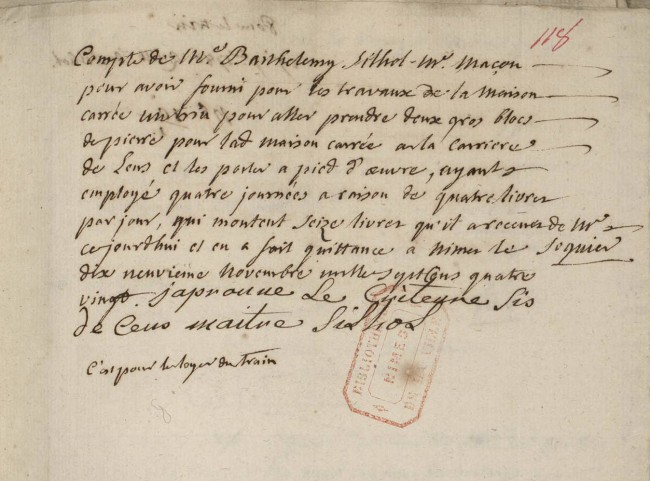 118
Compte de Mr. Barthelemy Silhol Mr. Maçon
pour avoir fourni pour les travaux de la maison
carrée un trin pour aller prendre deux gros blocs
de pierre pour lad maison carrée a la carriere
de Lens et les porter a pied d'œuvre, ayant
employé quatre journées a raison de quatre livres
par jour, qui montent seize livres qu'il a receues de Mr.
cejourdhui et en a fait quittance a nimes le Seguier
dix neuvieme novembre mille sept cens quatre
vingt. japrouve Le
de Ceus maitre Silhol
c'est pour le loyer du train
BIBLIOTHE
NIMES
DE LA VILLE